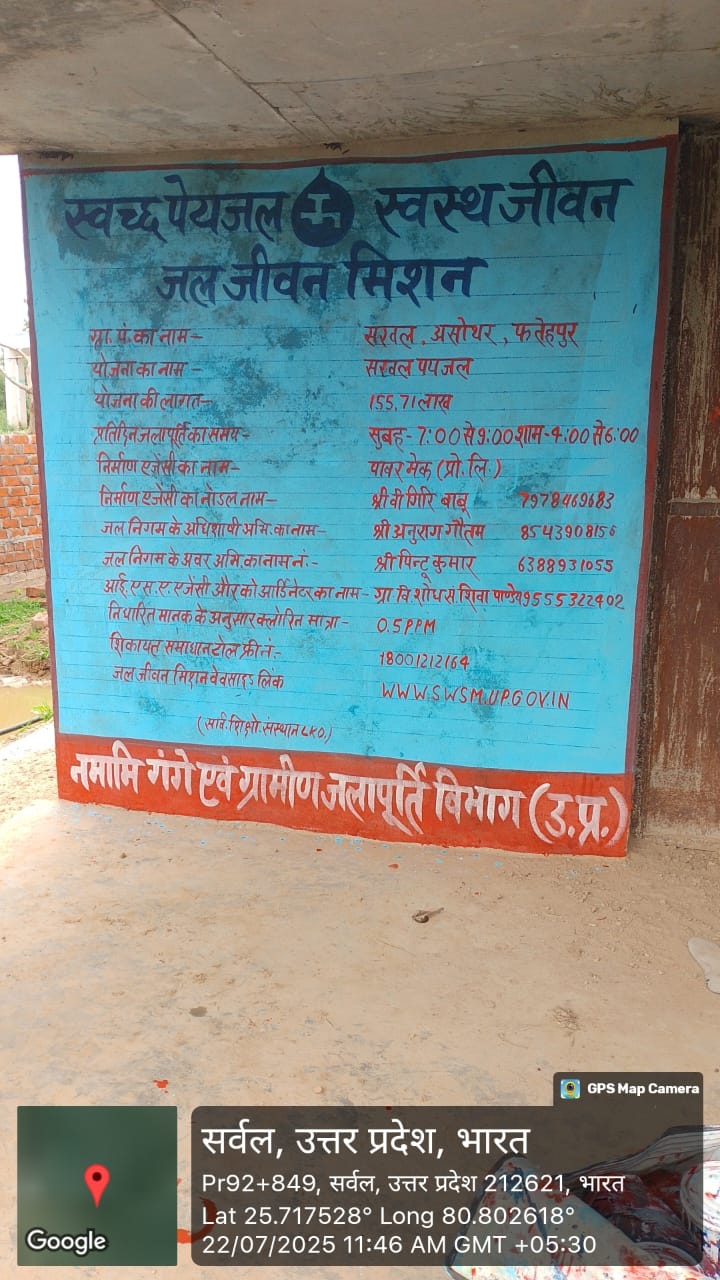 स्वच्छ पेयजल स्वस्थ जीवन
जल जीवन मिशन
ग्रा. पं. का नाम - सरवल, असोथर, फतेहपुर
योजना का नाम - सरवल पयजल
योजना की लागत - 155.71 लाख
प्रतिदिन जलापूर्ति का समय - सुबह - 7:00 से 9:00 शाम - 4:00 से 6:00
निर्माण एजेंसी का नाम - पावर मेक (प्रो. लि.)
निर्माण एजेंसी का नोडल नाम - श्री वी गिरि बाबू 7978469683
जल निगम के अधिशाषी अभि. का नाम - श्री अनुराग गौतम 8543908156
जल निगम के अवर अभि. का नाम नं. - श्री पिन्टू कुमार 6388931055
आई. एस. ए. एजेंसी और को आर्डिनेटर का नाम - ग्रा वि. शोध सं. शिवा पाण्डेय 9555322402
निर्धारित मानक के अनुसार क्लोरिन मात्रा - 0.5 PPM
शिकायत समाधान टोल फ्री नं. - 18001212164
जल जीवन मिशन वेबसाइड लिंक WWW.SWSM.UP.GOV.IN
नमामि गंगे एवं ग्रामीण जलापूर्ति विभाग (उ.प्र.)
GPS Map Camera
सर्वल, उत्तर प्रदेश, भारत
Pr92+849, सर्वल, उत्तर प्रदेश 212621, भारत
Lat 25.717528° Long 80.802618°
22/07/2025 11:46 AM GMT +05:30
Google